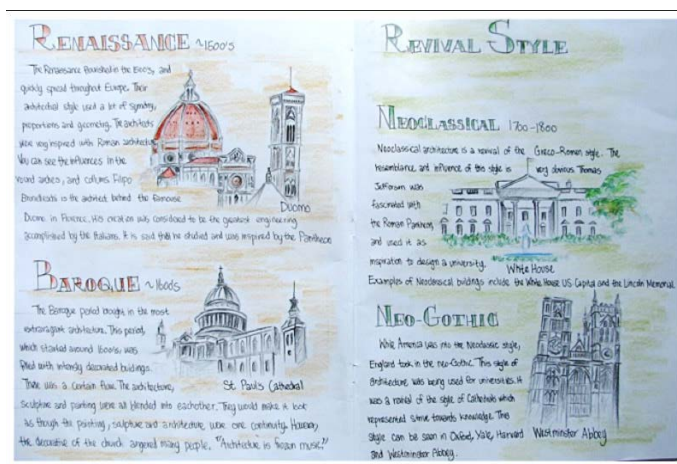 RENAISSANCE ~1500's
The Renaissance flourished in the 1500s, and
quickly spread throughout Europe. Their
architectual style used a lot of symmetry,
proportions and geometry. The architects
were very inspired with Roman architecture
You can see the influences in the
round arches, and collums. Filipo
Brunelleschi is the architect behind the famouse
Duomo
Duomo in Florence. His creation was considered to be the greatest engineering
accomplished by the Italians. It is said that he studied and was inspired by the Pantheon
BAROQUE ~1600s
The Baroque period bought in the most
extravagant architecture. This period,
which started around 1600's, was
filled with intensly decorated buildings.
There was a certain flow. The architecture,
St. Pauls Cathedral
Sculpture and painting were all blended into eachother. They would make it look
as though the painting, sculpture and architecture were one continuity. However,
the decorative of the church angered many people. "Architecture is frozen music!"
REVIVAL STYLE
NEOCLASSICAL 1700-1800
Neoclassical architecture is a revival of the Greco-Roman style. The
resemblance and influence of this style is very obvious Thomas
Jefferson was
fascinated with
the Roman Pantheon,
and used it as
inspiration to design a university.
White House
Examples of Neoclassical buildings include the White House US Capitol and the Lincoln Memorial
NEO-GOTHIC
While America was into the Neoclassic style,
England took in the neo-Gothic. This style of
architecture was being used for universities. It
was a revival of the style of Cathedrals which
represented strive towards knowledge. This
Style can be seen in Oxford, Yale, Harvard
and Westminster Abbey.
Westminster Abbey